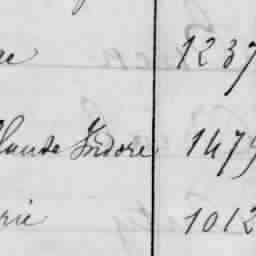 1237
laude Isidore 1479
rie 1012